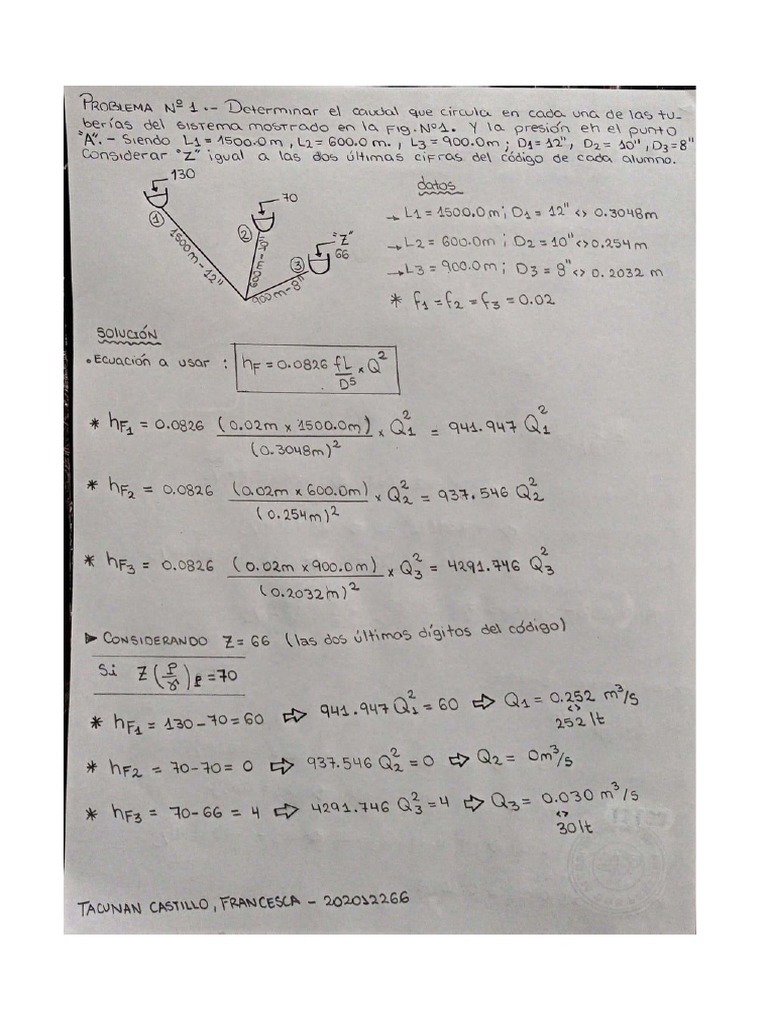 PROBLEMA Nº 1.- Determinar el caudal que circula en cada una de las tu-
berías del sistema mostrado en la Fig. Nº1. Y la presión en el punto
"A".- Siendo L1 = 1500.0m, L2 = 600.0m., L3 = 900.0m; D1 = 12", D2 = 10", D3 = 8"
Considerar "Z" igual a las dos últimas cifras del código de cada alumno.
130
70
"Z"
66
1
2
3
1500m - 12"
600m - 10"
900m - 8"
datos
→ L1 = 1500.0m; D1 = 12" <> 0.3048m
→ L2 = 600.0m; D2 = 10" <> 0.254m
→ L3 = 900.0m; D3 = 8" <> 0.2032 m
* f1 = f2 = f3 = 0.02
SOLUCIÓN
• Ecuación a usar : hF = 0.0826 fL/D⁵ x Q²
* hF1 = 0.0826 (0.02m x 1500.0m)/(0.3048m)² x Q1² = 941.947 Q1²
* hF2 = 0.0826 (0.02m x 600.0m)/(0.254m)² x Q2² = 937.546 Q2²
* hF3 = 0.0826 (0.02m x 900.0m)/(0.2032m)² x Q3² = 4291.746 Q3²
▶ CONSIDERANDO Z = 66 (las dos últimas dígitos del código)
Si Z(P/γ)P = 70
* hF1 = 130 - 70 = 60 ⇨ 941.947 Q1² = 60 ⇨ Q1 = 0.252 m³/s
<>
252 lt
* hF2 = 70 - 70 = 0 ⇨ 937.546 Q2² = 0 ⇨ Q2 = 0m³/s
* hF3 = 70 - 66 = 4 ⇨ 4291.746 Q3² = 4 ⇨ Q3 = 0.030 m³/s
<>
30 lt
TACUNAN CASTILLO, FRANCESCA - 202012266